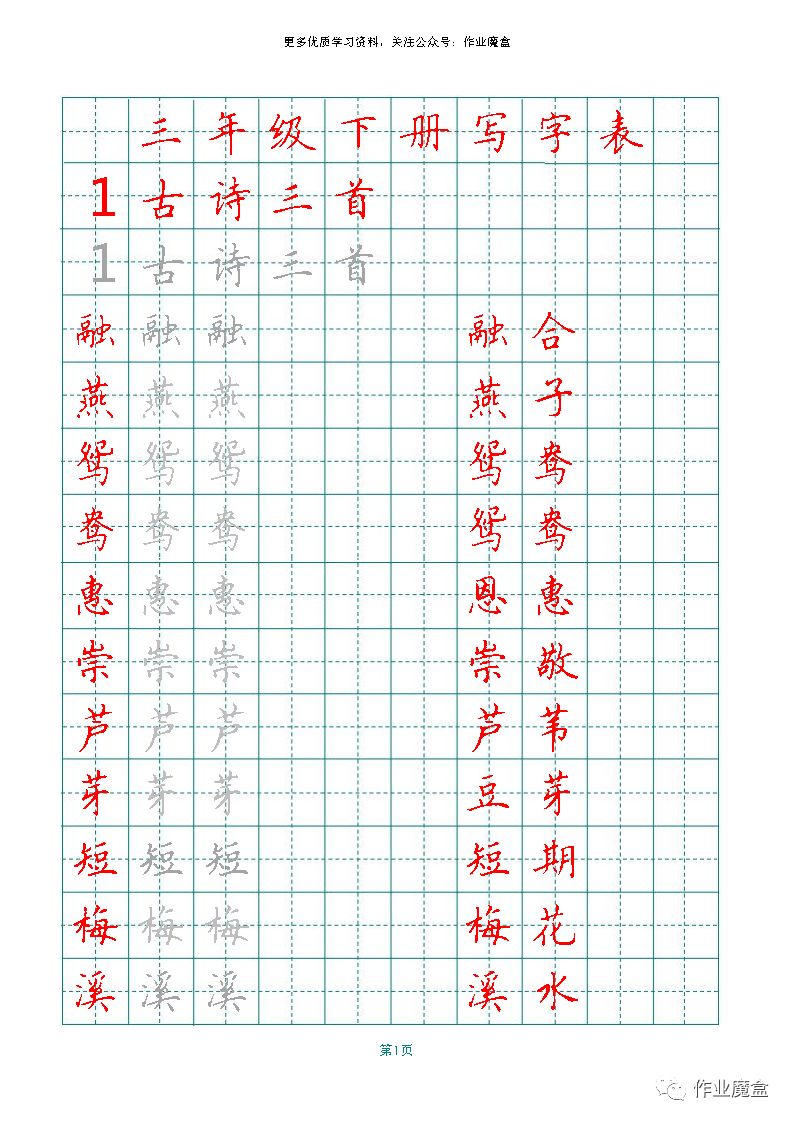 更多优质学习资料，关注公众号：作业魔盒
三年级下册写字表
1古诗三首
1古诗三首
融融融 融合
燕燕燕 燕子
鸳鸳鸳 鸳鸯
鸯鸯鸯 鸳鸯
惠惠惠 恩惠
崇崇崇 崇敬
芦芦芦 芦苇
芽芽芽 豆芽
短短短 短期
梅梅梅 梅花
溪溪溪 溪水
第1页
作业魔盒